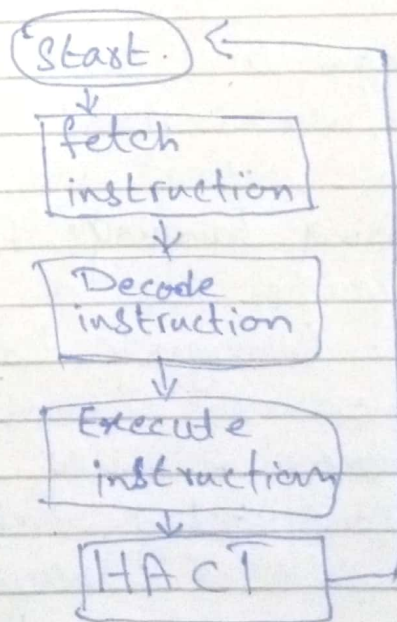 Start.
fetch
instruction
Decode
instruction
Execute
instruction
HACT